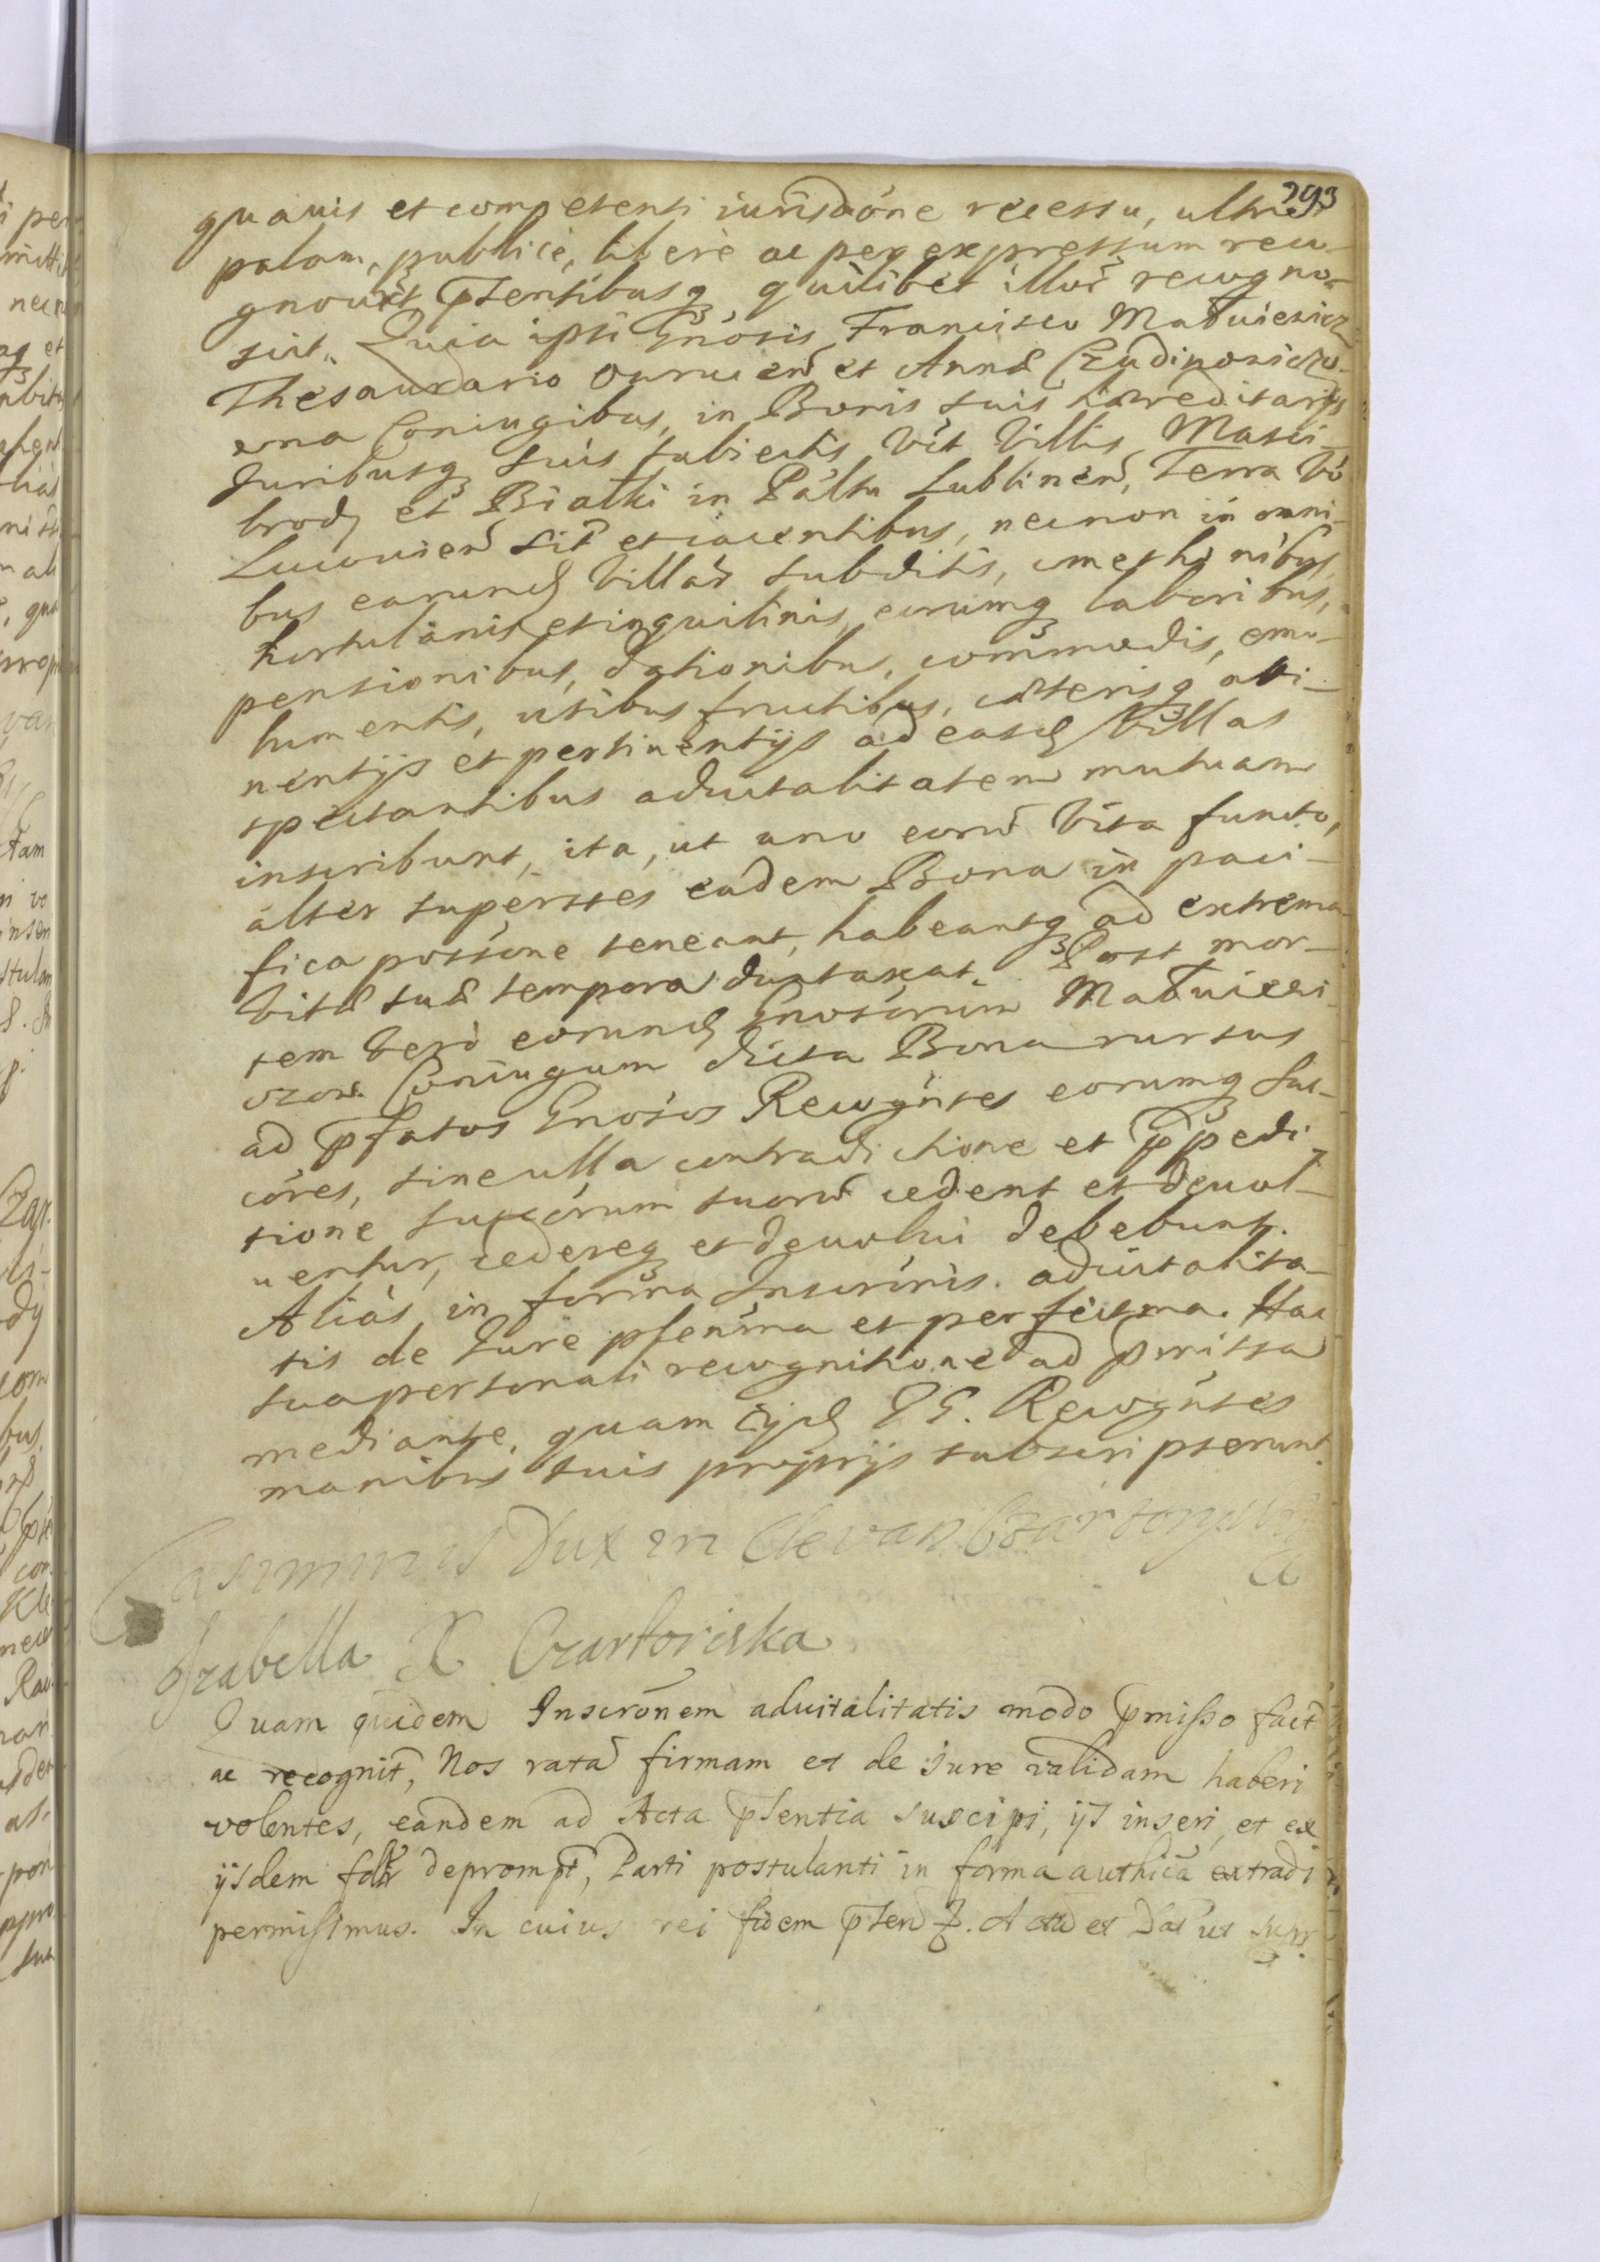 293
quavis et competenti iurisdõne recessu, ultro
palam, publicè, liberè ac per expressum reco-
gnovit pñtentibusq quilibet illor̃ recogno-
scit. Quia ipsi Gñosis Francisco Matuiewicz
Thesaurario Ovrucen̄ et Annæ Czudinowiczo-
wna Coniugibus, in Bonis suis hæreditarijs
Juribusq suis subiectis Vt Villis Masci-
brody et Białki in Páltu Lublinen̄, Terra vó
Lucovien̄ sit̃ et iacentibus, necnon in omni-
bus earund Villar̃ subditis, cmethonibus,
hortulanis et inquilinis, eorumq laboribus,
pensionibus, dationibus, com̃modis, emo-
lumentis, usibus fructibus, cæterisq atti-
nentijs et pertinentijs ad easd Villas
spectantibus advitalitatem mutuam
inscribunt, ita, ut uno eorũ Vita functo,
alter superstes eadem Bona in paci-
fica possióne teneant, habeantq ad extrema
Vitæ suæ tempora duntaxat. Post mor-
tem Verò eorund Gnosórum Matuiewi-
czow Coniugum dicta Bona rursus
ad pfatos Gnósos Recogñtes eorumq Suc-
córes, sine ulla contradictione et p̃pedi-
tione Succórum suorũ cedent et devol-
ventur, cedereq et devolvi debebunt.
Aliás in forma Inscrónis advitalita-
tis de Jure pleníma et perfectma. Hac
sua personali recognitione ad p̃missa
mediante, quam ijd GG. Recogñtes
manibus suis proprijs subscripserunt.
Casimirus Dux in Clevan Czartoryski
Izabella X Czartoriska
Quam quidem Inscrõnem advitalitatis modo p̃misso fact̃
ac recognit̃, Nos ratã firmam et de iure validam haberi
volentes, eandem ad Acta p̃sentia suscipi, ijs inseri, et ex
ijsdem deprompt̃, Parti postulanti in forma authica extradi
permisimus. In cuius rei fidem p̃sen̄ Actũ et Dat̃ ut supr.